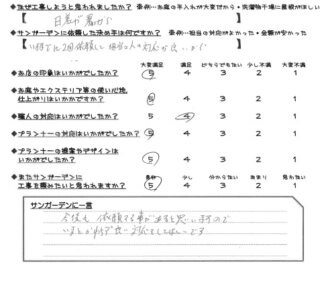 ◆なぜ工事しようと思われましたか? 事例…お庭の手入れが大変だから・洗濯物干場に屋根がほしい
【 日差が暑から
◆サンガーデンに依頼した決め手は何ですか? 事例…担当の対応がよかった・金額が安かった
【 以前に2回依頼して 担当の人の対応が良いから 】
大変満足 満足 どちらでもない 少し不満 大変不満
◆お店の印象はいかがでしたか? 5 4 3 2 1
◆お庭やエクステリア等の使い心地、
仕上がりはいかがですか? 5 4 3 2 1
◆職人の対応はいかがでしたか? 5 4 3 2 1
◆プランナーの対応はいかがでしたか? 5 4 3 2 1
◆プランナーの提案やデザインは
いかがでしたか? 5 4 3 2 1
◆またサンガーデンに
工事を頼みたいと思われますか? 多分 少し 分からない あまり 思わない
5 4 3 2 1
サンガーデンに一言
今後も 依頼する事があると思いますので